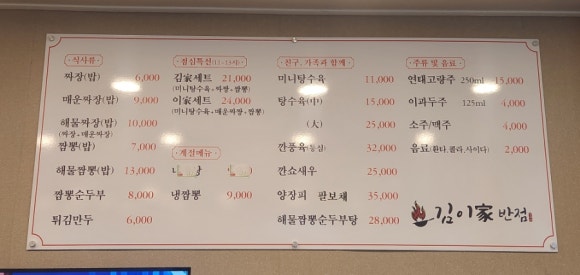 식사류
짜장(밥) 6,000
매운짜장(밥) 9,000
해물짜장(밥) 10,000
(짜장•매운짜장)
짬뽕(밥) 7,000
해물짬뽕(밥) 13,000
짬뽕순두부 8,000
튀김만두 6,000
점심특선(11~15시)
김家세트 21,000
(미니탕수육+짜장+짬뽕)
이家세트 24,000
(미니탕수육+매운짜장+짬뽕)
계절메뉴
냉짬뽕 9,000
친구, 가족과 함께
미니탕수육 11,000
탕수육(中) 15,000
(大) 25,000
깐풍육(등심) 32,000
깐쇼새우 25,000
양장피 팔보채 35,000
해물짬뽕순두부탕 28,000
주류 및 음료
연태고량주 250ml 15,000
이과두주 125ml 4,000
소주/맥주 4,000
음료(환타,콜라,사이다) 2,000
김이家 반점